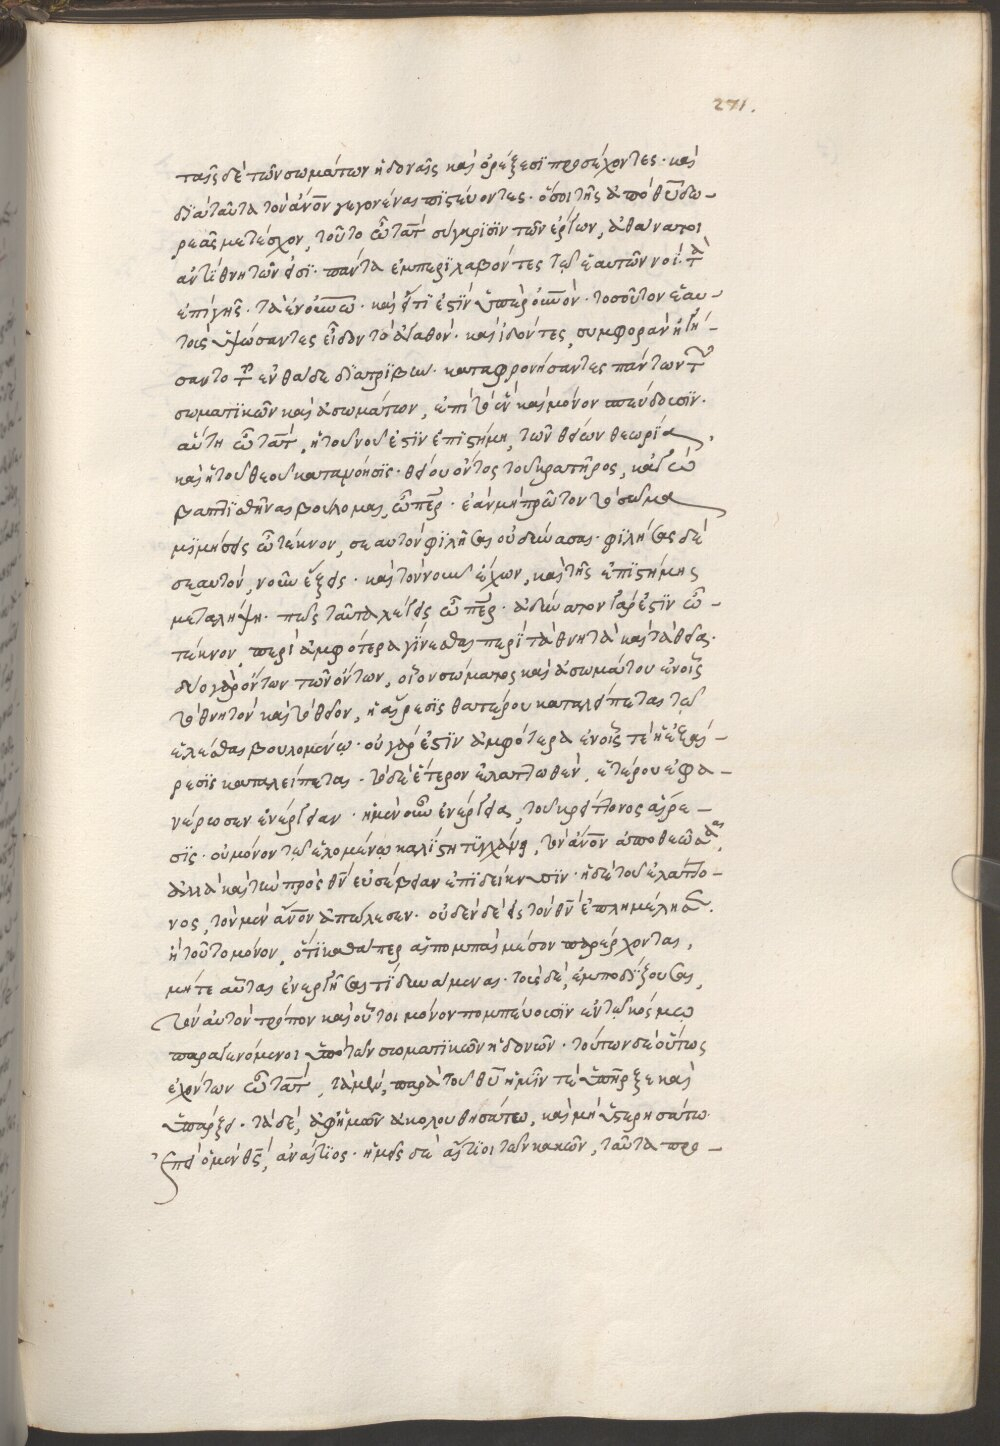 271.
ταῖς δὲ τῶν σωμάτων ἡδοναῖς καὶ ὀρέξεσι προσέχοντες· καὶ
διὰ ταῦτα τὸν ἀνο̅ν γεγονέναι πιστεύοντες· ὅσοι τῆς ἀπὸ θυ̅ δω-
ρεᾶς μετέσχον, οὗτοι ὦ τὰτ σύγκρισιν τῶν ἔργων, ἀθάνατοι
ἀντὶ θνητῶν εἰσι· πάντα ἐμπεριλαβόντες τῷ ἑαυτῶν νοΐ· τὰ
ἐπὶ γῆς· τὰ ἐν οὐνω̅· καὶ εἴ τι ἐστὶν ὑπὲρ οὐνο̅ν· τοσοῦτον ἑαυ-
τοὺς ὑψώσαντες εἶδον τὸ ἀγαθόν· καὶ ἰδόντες, συμφορὰν ἡγή-
σαντο τὴν ἐνθάδε διατριβὴν· καταφρονήσαντες πάντων τῶν
σωματικῶν καὶ ἀσωμάτων, ἐπὶ τὸ ἓν καὶ μόνον σπεύδουσιν·
αὕτη ὦ τὰτ, ἡ τοῦ νοῦ ἐστὶν ἐπιστήμη, τῶν θείων θεωρία,
καὶ ἡ τοῦ θεοῦ κατανόησις· θείου ὄντος τοῦ κρατῆρος, κἀγὼ
βαπτισθῆναι βούλομαι, ὦ πε̅ρ· ἐὰν μὴ πρῶτον τὸ σῶμα
μισήσεις ὦ τέκνον, σεαυτὸν φιλῆσαι οὐ δύνασαι· φιλήσας δὲ
σεαυτὸν, νοῦν ἕξεις· καὶ τὸν νοῦν ἔχων, καὶ τῆς ἐπιστήμης
μεταλήψῃ· πῶς ταῦτα λέγεις ὦ πε̅ρ· ἀδύνατον γάρ ἐστιν ὦ
τέκνον, περὶ ἀμφότερα γίνεσθαι περὶ τὰ θνητὰ καὶ τὰ θεῖα·
δύο γὰρ ὄντων τῶν ὄντων, οἷον σώματος καὶ ἀσωμάτου ἐν οἷς
τὸ θνητὸν καὶ τὸ θεῖον, ἡ αἵρεσις θατέρου καταλείπεται τῷ
ἑλέσθαι βουλομένῳ· οὐ γάρ ἐστιν ἀμφότερα ἐν οἷς τε ἡ ἐξαί-
ρεσις καταλείπεται· τὸ δὲ ἕτερον ἐλαττωθὲν, ἑτέρου ἐφα-
νέρωσεν ἐνέργειαν· ἡ μὲν οὖν ἐνέργεια, τοῦ κρείττονος αἵρε-
σις· οὐ μόνον τῷ ἑλομένῳ καλλίστη τυγχάνει, τὸν ἀνο̅ν ἀποθεῶσαι,
ἀλλὰ καὶ τὴν πρὸς θν̅ εὐσέβειαν ἐπιδείκνυσιν· ἡ δὲ τοῦ ἐλάττο-
νος, τὸν μὲν ἄνο̅ν ἀπώλεσεν· οὐδὲν δὲ εἰς τὸν θν̅ ἐπλημμέλησεν·
ἢ τοῦτο μόνον, ὅτι καθάπερ αἱ πομπαὶ μέσον παρέρχονται,
μήτε αὗται ἐνεργῆσαί τι δυνάμεναι· τοὺς δὲ, ἐμποδίζουσαι,
τὸν αὐτὸν τρόπον καὶ οὗτοι μόνον πομπεύουσιν ἐν τῷ κόσμῳ
παραγενόμενοι ὑπὸ τῶν σωματικῶν ἡδονῶν· τούτων δὲ οὕτως
ἐχόντων ὦ τὰτ, τὰ μὲν, παρὰ τοῦ θυ̅ ἡμῖν τε ὑπῆρξε καὶ
ὑπάρξει· τὰ δὲ, ἀφ' ἡμῶν ἀκολουθησάτω, καὶ μὴ ὑστερησάτω
ἐπεὶ ὁ μὲν θς̅, ἀναίτιος· ἡμεῖς δὲ αἴτιοι τῶν κακῶν, ταῦτα προ-